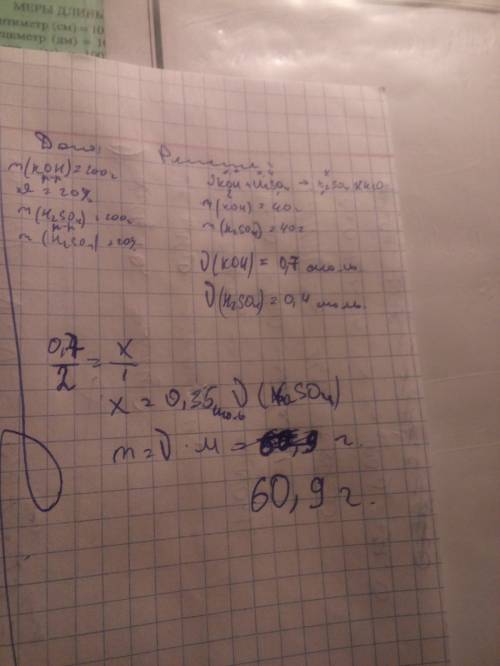 МЕРЫ ДЛИНЫ
нтиметр (см) = 10
ециметр (дм) = 10
100
Дано:
Решение:
m(KOH) = 200г
р-р
= 20%
m(H₂SO₄) = 200г
р-р
(H₂SO₄) = 20%
2KOH + H₂SO₄ → K₂SO₄ + 2H₂O
m(KOH) = 40г
m(H₂SO₄) = 40г
ν(KOH) = 0,7 моль
ν(H₂SO₄) = 0,4 моль
0,7/2 = x/1
x = 0,35 моль ν(K₂SO₄)
m = ν · M = г.
60,9 г.